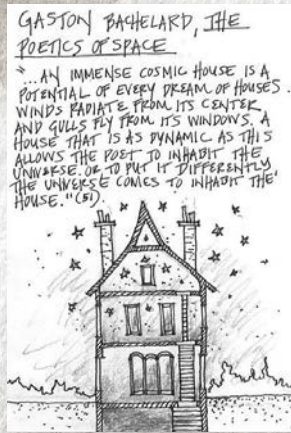 GASTON BACHELARD, THE
POETICS OF SPACE
"...AN IMMENSE COSMIC HOUSE IS A
POTENTIAL OF EVERY DREAM OF HOUSES.
WINDS RADIATE FROM ITS CENTER
AND GULLS FLY FROM ITS WINDOWS. A
HOUSE THAT IS AS DYNAMIC AS THIS
ALLOWS THE POET TO INHABIT THE
UNIVERSE. OR TO PUT IT DIFFERENTLY
THE UNIVERSE COMES TO INHABIT THE
HOUSE." (51)